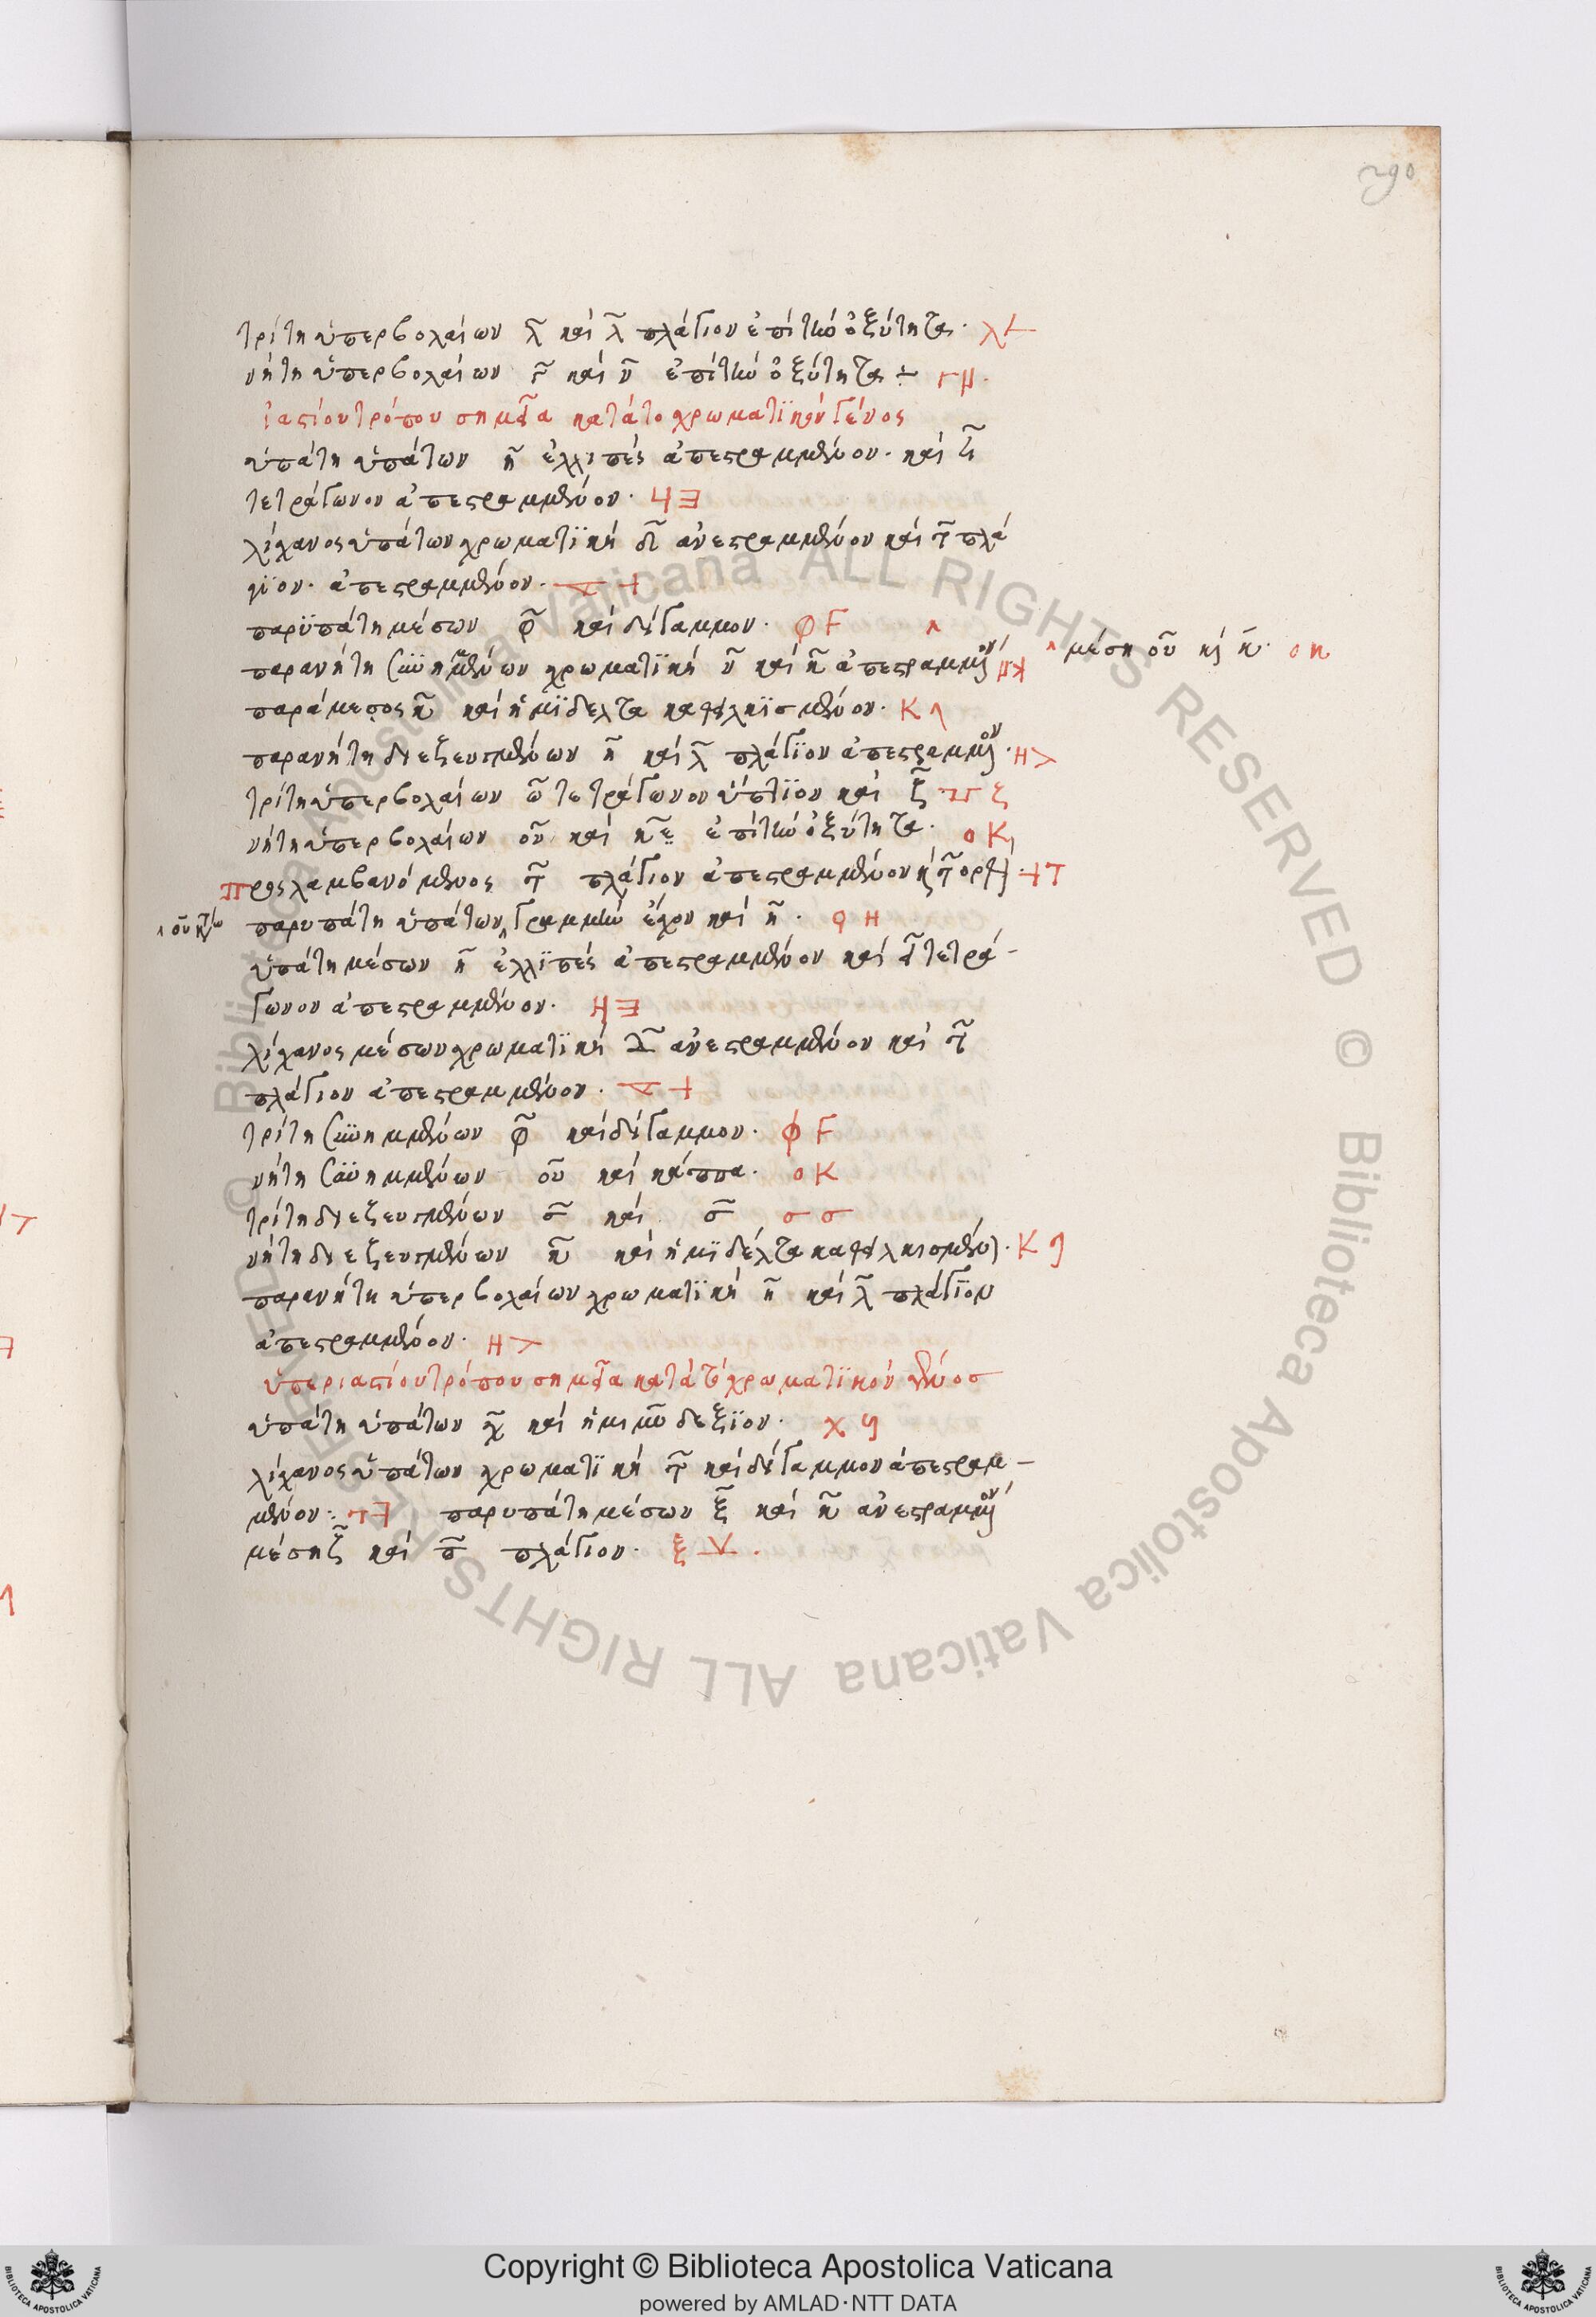 290
τρίτη ὑπερβολαίων λ καὶ λ πλάγιον ἐπὶ τὴν ὀξύτητα. λ
νήτη ὑπερβολαίων γ καὶ ν ἐπὶ τὴν ὀξύτητα
ἰαστίου τρόπου σημεῖα κατὰ το χρωματϊκὸν γένος
ὑπάτη ὑπάτων η ἐλλιπὲς ἀπεστραμμένον. καὶ ε
τετράγωνον ἀπεστραμμένον. Ε
λίχανος ὑπάτων χρωματϊκὴ δ ἀνεστραμμένον καὶ τ πλά
γϊον. ἀπεστραμμένον.
παρϋπάτη μέσων φ καὶ δίγαμμον. φ F
παρανήτη συνημμένων χρωματϊκὴ π καὶ κ ἀπεστραμμένον
μέση οῦ καὶ κ. ο κ
παράμεσος κ καὶ ἡμϊδελτα καθειλκϊσμένον. Κ
παρανήτη διεζευγμένων η καὶ λ πλάγϊον ἀπεστραμμένον. Η >
τρίτη ὑπερβολαίων ω τετράγωνον ὕπτϊον καὶ ζ
νήτη ὑπερβολαίων οῦ καὶ κ ἐπὶ τὴν ὀξύτητα. ο Κ
προσλαμβανόμενος τ πλάγιον ἀπεστραμμένον καὶ τ ὀρθὸν
παρυπάτη ὑπάτων γραμμὴν ἔχον καὶ η. Η
ὑπάτη μέσων η ἐλλϊπὲς ἀπεστραμμένον καὶ ε τετρά-
γωνον ἀπεστραμμένον.
λίχανος μέσων χρωματϊκὴ δ ἀνεστραμμένον καὶ τ
πλάγιον ἀπεστραμμένον.
τρίτη συνημμένων φ καὶ δίγαμμον. φ F
νήτη συνημμένων οῦ καὶ κάππα. ο Κ
τρίτη διεζευγμένων σ καὶ σ σ σ
νήτη διεζευγμένων κ καὶ ἡμϊδέλτα καθειλκισμένον. Κ
παρανήτη ὑπερβολαίων χρωματϊκὴ η καὶ λ πλάγϊον
ἀπεστραμμένον. Η >
ὑπεριαστίου τρόπου σημεῖα κατὰ τὸ χρωματϊκὸν γένοσ
ὑπάτη ὑπάτων χ καὶ ἡμιμυ δεξϊὸν. χ
λίχανος ὑπάτων χρωματϊκὴ τ καὶ δίγαμμον ἀπεστραμ-
μένον: παρυπάτη μέσων ξ καὶ κ ἀνεστραμμένον
μέση ξ καὶ π πλάγιον. ξ
Copyright © Biblioteca Apostolica Vaticana
powered by AMLAD·NTT DATA
© Biblioteca Apostolica Vaticana ALL RIGHTS RESERVED © Biblioteca Apostolica Vaticana ALL RIGHTS RESERVED